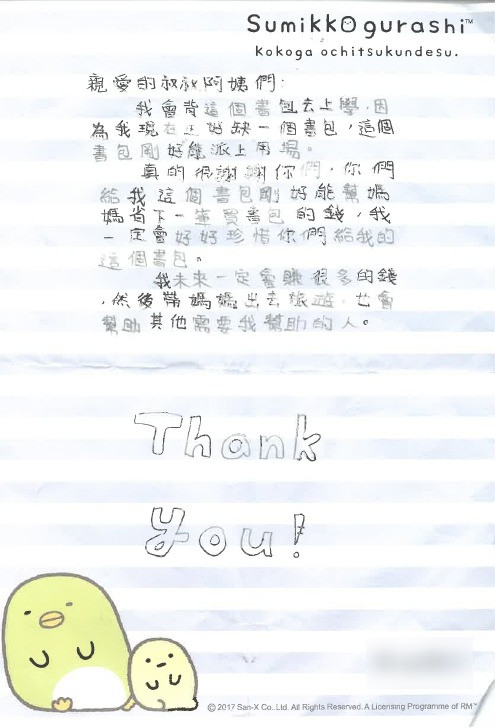 Sumikkogurashi™
Kokoga ochitsukundesu.
親愛的叔叔阿姨們:
我會背這個書包去上學,因
為我現在正好缺一個書包,這個
書包剛好能派上用場。
真的很謝謝你們,你們
給我這個書包剛好能幫媽
媽省下一筆買書包的錢,我
一定會好好珍惜你們給我的
這個書包。
我未來一定會賺很多的錢
,然後帶媽媽出去旅遊,也會
幫助其他需要我幫助的人。
Thank
You!
©2017 San-X Co.,Ltd. All Rights Reserved. A Licensing Programme of RM™